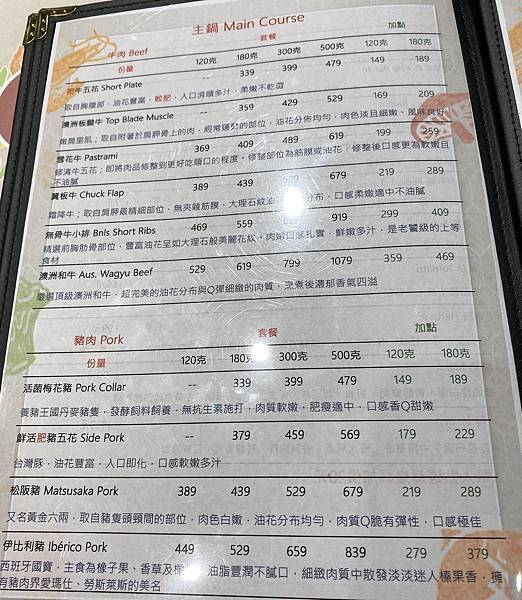 主鍋 Main Course
牛肉 Beef 套餐 加點
份量 120克 180克 300克 500克 120克 180克
肥牛五花 Short Plate -- 339 399 479 149 189
取自胸腹部、油花豐富，較肥，入口滑順多汁，柔嫩不乾澀
澳洲板腱牛 Top Blade Muscle -- 359 429 529 169 209
嫩肩里肌；取自附著於肩胛骨上的肉，經常運動的部位，油花分佈均勻，肉色淡且細嫩、風味良好
雪花牛 Pastrami 369 409 489 619 199 259
修清牛五花；即將肉品修整到更好吃順口的程度。修整部位為筋膜或油花，修整後口感更為軟嫩且
不油膩
翼板牛 Chuck Flap 389 439 529 679 219 289
霜降牛；取自肩胛最精細部位，無夾雜筋膜，大理石紋油花分布，口感柔嫩適中不油膩
無骨牛小排 Bnls Short Ribs 469 559 919 299 409
精選前胸肋骨部位，豐富油花呈如大理石般美麗花紋。肉嫩口感扎實，鮮嫩多汁，是老饕級的上等
食材
澳洲和牛 Aus. Wagyu Beef 529 619 799 1079 359 469
嚴選頂級澳洲和牛，超完美的油花分布與Q彈細緻的肉質，烹煮後濃郁香氣四溢
豬肉 Pork 套餐 加點
份量 120克 180克 300克 500克 120克 180克
活菌梅花豬 Pork Collar -- 339 399 479 149 189
養豬王國丹麥豬隻，發酵飼料飼養，無抗生素施打，肉質軟嫩，肥瘦適中，口感香Q甜嫩
鮮活肥豬五花 Side Pork -- 379 459 569 179 229
台灣豚，油花豐富，入口即化，口感軟嫩多汁
松阪豬 Matsusaka Pork 389 439 529 679 219 289
又名黃金六兩，取自豬隻頭頸間的部位，肉色白嫩，油花分布均勻，肉質Q脆有彈性，口感極佳
伊比利豬 Ibérico Pork 449 529 659 839 279 379
西班牙國寶，主食為橡子果、香草及橄欖，油脂豐潤不膩口，細緻肉質中散發淡淡迷人榛果香，擁
有豬肉界愛瑪仕、勞斯萊斯的美名